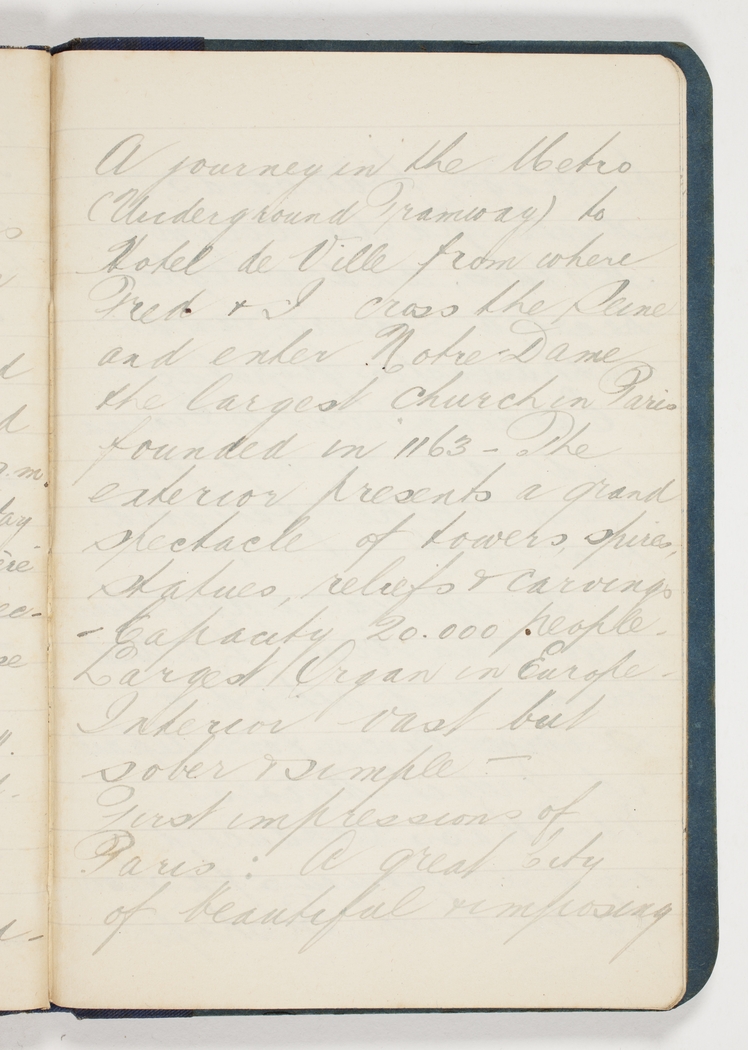 A journey in the Metro
(Underground Tramway) to
Hotel de Ville from where
Fred & I cross the Seine
and enter Notre-Dame
the largest church in Paris
founded in 1163 - The
exterior presents a grand
spectacle of towers, spires,
statues, reliefs & carvings
- Capacity 20.000 people -
Largest Organ in Europe -
Interior vast but
sober & simple -
First impressions of
Paris : A great City
of beautiful & imposing